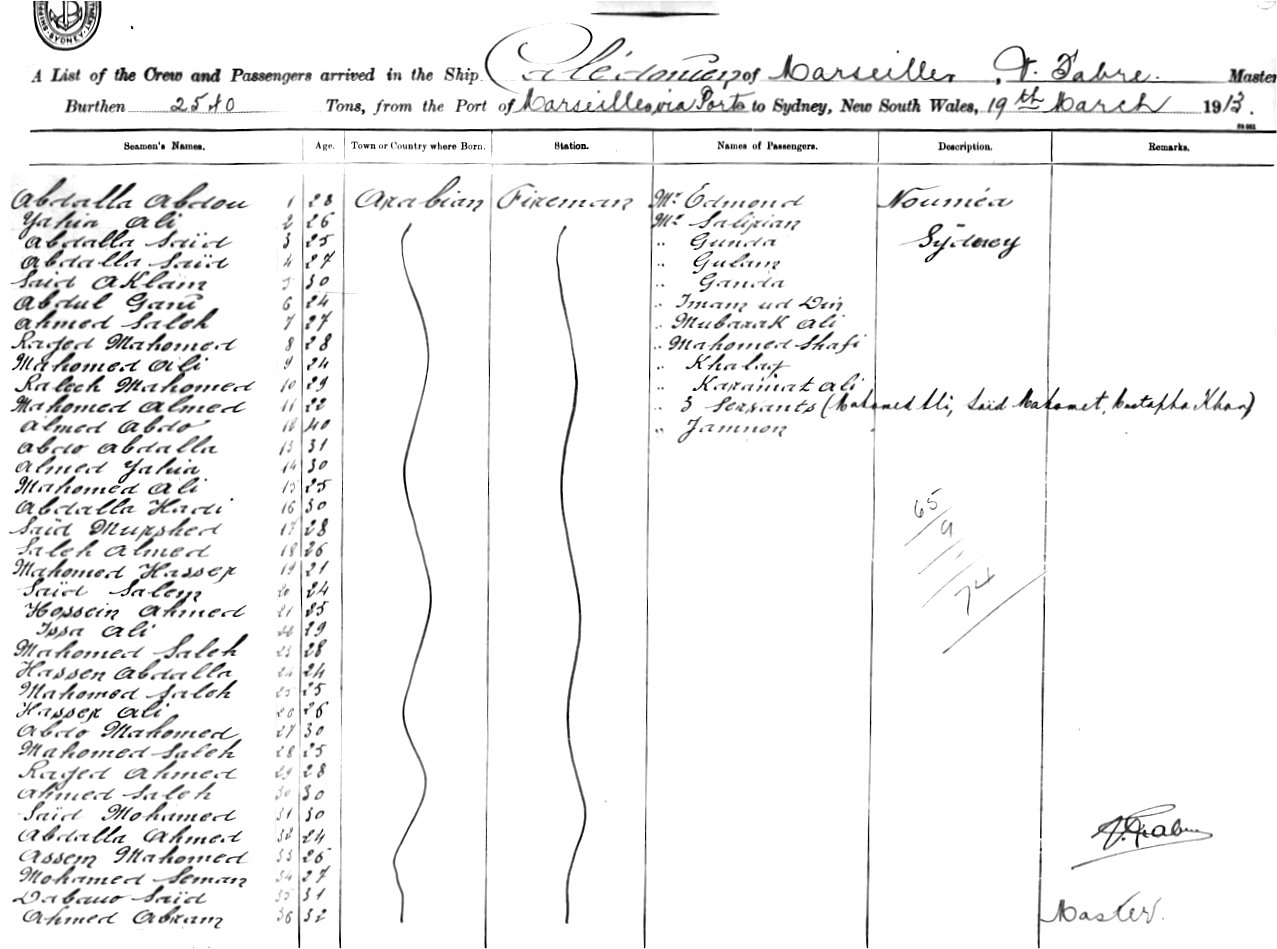 SYDNEY
A List of the Crew and Passengers arrived in the Ship Calédonien of Marseilles, V. Fabre. Master
Burthen 2540 Tons, from the Port of Marseilles via Ports to Sydney, New South Wales, 19th March 1913.
Seamen's Names. Age. Town or Country where Born. Station. Names of Passengers. Description. Remarks.
Abdalla Abdou 1 28 Arabian Fireman Mr Edmond Nouméa
Yahia Ali 2 26 Mr Salipian
Abdalla Saïd 3 25 " Gunda Sydney
Abdalla Saïd 4 27 " Gulam
Saïd Aklam 5 30 " Ganda
Abdul Gani 6 24 " Imam ud Din
Ahmed Saleh 7 27 " Mubarak Ali
Raged Mahomed 8 28 " Mahomed Shafi
Mahomed Ali 9 24 "
Saleh Mahomed 10 29 " Karamat Ali
Mahomed Almed 11 22 " 3 Servants (Mahomed Ali, Saïd Mahomet, Mustapha Khan)
Almed Abdo 12 40 " Jamnon
Abdo Abdalla 13 31
Almed Yahia 14 30
Mahomed Ali 15 25
Abdalla Hadi 16 30
Saïd Murshed 17 28
Saleh Almed 18 26
Mahomed Hassen 19 21
Saïd Salem 20 24
Hossein Ahmed 21 25
Issa Ali 22 29
Mahomed Saleh 23 28
Hassen Abdalla 24 24
Mahomed Saleh 25 25
Hassen Ali 26 26
Abdo Mahomed 27 30
Mahomed Saleh 28 25
Raged Ahmed 29 28
Ahmed Saleh 30 30
Saïd Mohamed 31 30
Abdalla Ahmed 32 24
Assem Mahomed 33 26
Mohamed Seman 34 27
Saïd 35 31
Ahmed Abram 36 32
65
9
74
Master.